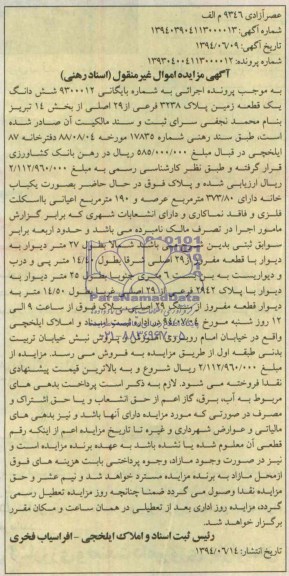 عصرآزادی ۹۳۴۶ م الف
شماره آگهی: ۱۳۹۴۰۳۹۰۴۱۱۳۰۰۰۰۱۳
تاریخ آگهی: ۱۳۹۴/۰۶/۰۹
شماره پرونده: ۱۳۹۳۰۴۰۰۴۱۱۳۰۰۰۰۱۲
آگهی مزایده اموال غیرمنقول (اسناد رهنی)
به موجب پرونده اجرائی به شماره بایگانی ۹۳۰۰۰۱۲ شش دانگ
یک قطعه زمین پلاک ۳۲۳۸ فرعی از۲۹ اصلی از بخش ۱۴ تبریز
بنام محمد نجفی سرای ثبت و سند مالکیت آن صادر شده
است، طبق سند رهنی شماره ۱۷۸۳۵ مورخه ۸۸/۰۸/۰۴ دفترخانه ۸۷
ایلخچی در قبال مبلغ ۵۸۵/۰۰۰/۰۰۰ ریال در رهن بانک کشاورزی
قرار گرفته و طبق نظر کارشناسی رسمی به مبلغ ۲/۱۱۲/۹۶۰/۰۰۰
ریال ارزیابی شده و پلاک فوق در حال حاضر بصورت یکباب
خانه دارای ۳۷۳/۸۰ مترمربع عرصه و ۱۹۰ مترمربع اعیانی بااسکلت
فلزی و فاقد نماکاری و دارای انشعابات شهری که برابر گزارش
مامور اجرا در تصرف مالک نامبرده می باشد و حدود اربعه برابر
سوابق ثبتی بدین بطول ۲۷ متر دیوار به
دیوار با قطعه ۲۹ اصلی شرقا بطول ۱۴/۵۰ متر پی و درب
و دیواریست به متری بطول ۲۵ متر دیوار به
دیوار با پلاک ۲۹۴۲ فرعی از ۲۹ بطول ۱۴/۵۰ متر به
دیوار قطعه مفروز از ۲۹ اصلی پلاک فوق از ساعت ۹ الی
۱۲ روز شنبه مورخ اسناد و املاک ایلخچی
واقع در خیابان امام روبروی نبش خیابان تربیت
بدنی طبقه اول از طریق مزایده به فروش می رسد. مزایده از
مبلغ ۲/۱۱۲/۹۶۰/۰۰۰ ریال شروع و به بالاترین قیمت پیشنهادی
نقدا فروخته می شود. لازم به ذکر است پرداخت بدهی های
مربوط به آب، برق، گاز اعم از حق انشعاب و یا حق اشتراک و
مصرف در صورتی که مورد مزایده دارای آنها باشد و نیز بدهی های
مالیاتی و عوارض شهرداری و غیره تا تاریخ مزایده اعم از اینکه رقم
قطعی آن معلوم شده یا نشده باشد به عهده برنده مزایده است و
نیز در صورت وجود مازاد، وجوه پرداختی بابت هزینه های فوق
ازمحل مازاد به برنده مزایده مسترد خواهد شد و نیم عشر و حق
مزایده نقدا وصول می گردد ضمنا چنانچه روز مزایده تعطیل رسمی
گردد، مزایده روز اداری بعد از تعطیلی در همان ساعت و مکان مقرر
برگزار خواهد شد.
رئیس ثبت اسناد و املاک ایلخچی - افراسیاب فخری
تاریخ انتشار: ۱۳۹۴/۰۶/۱۴